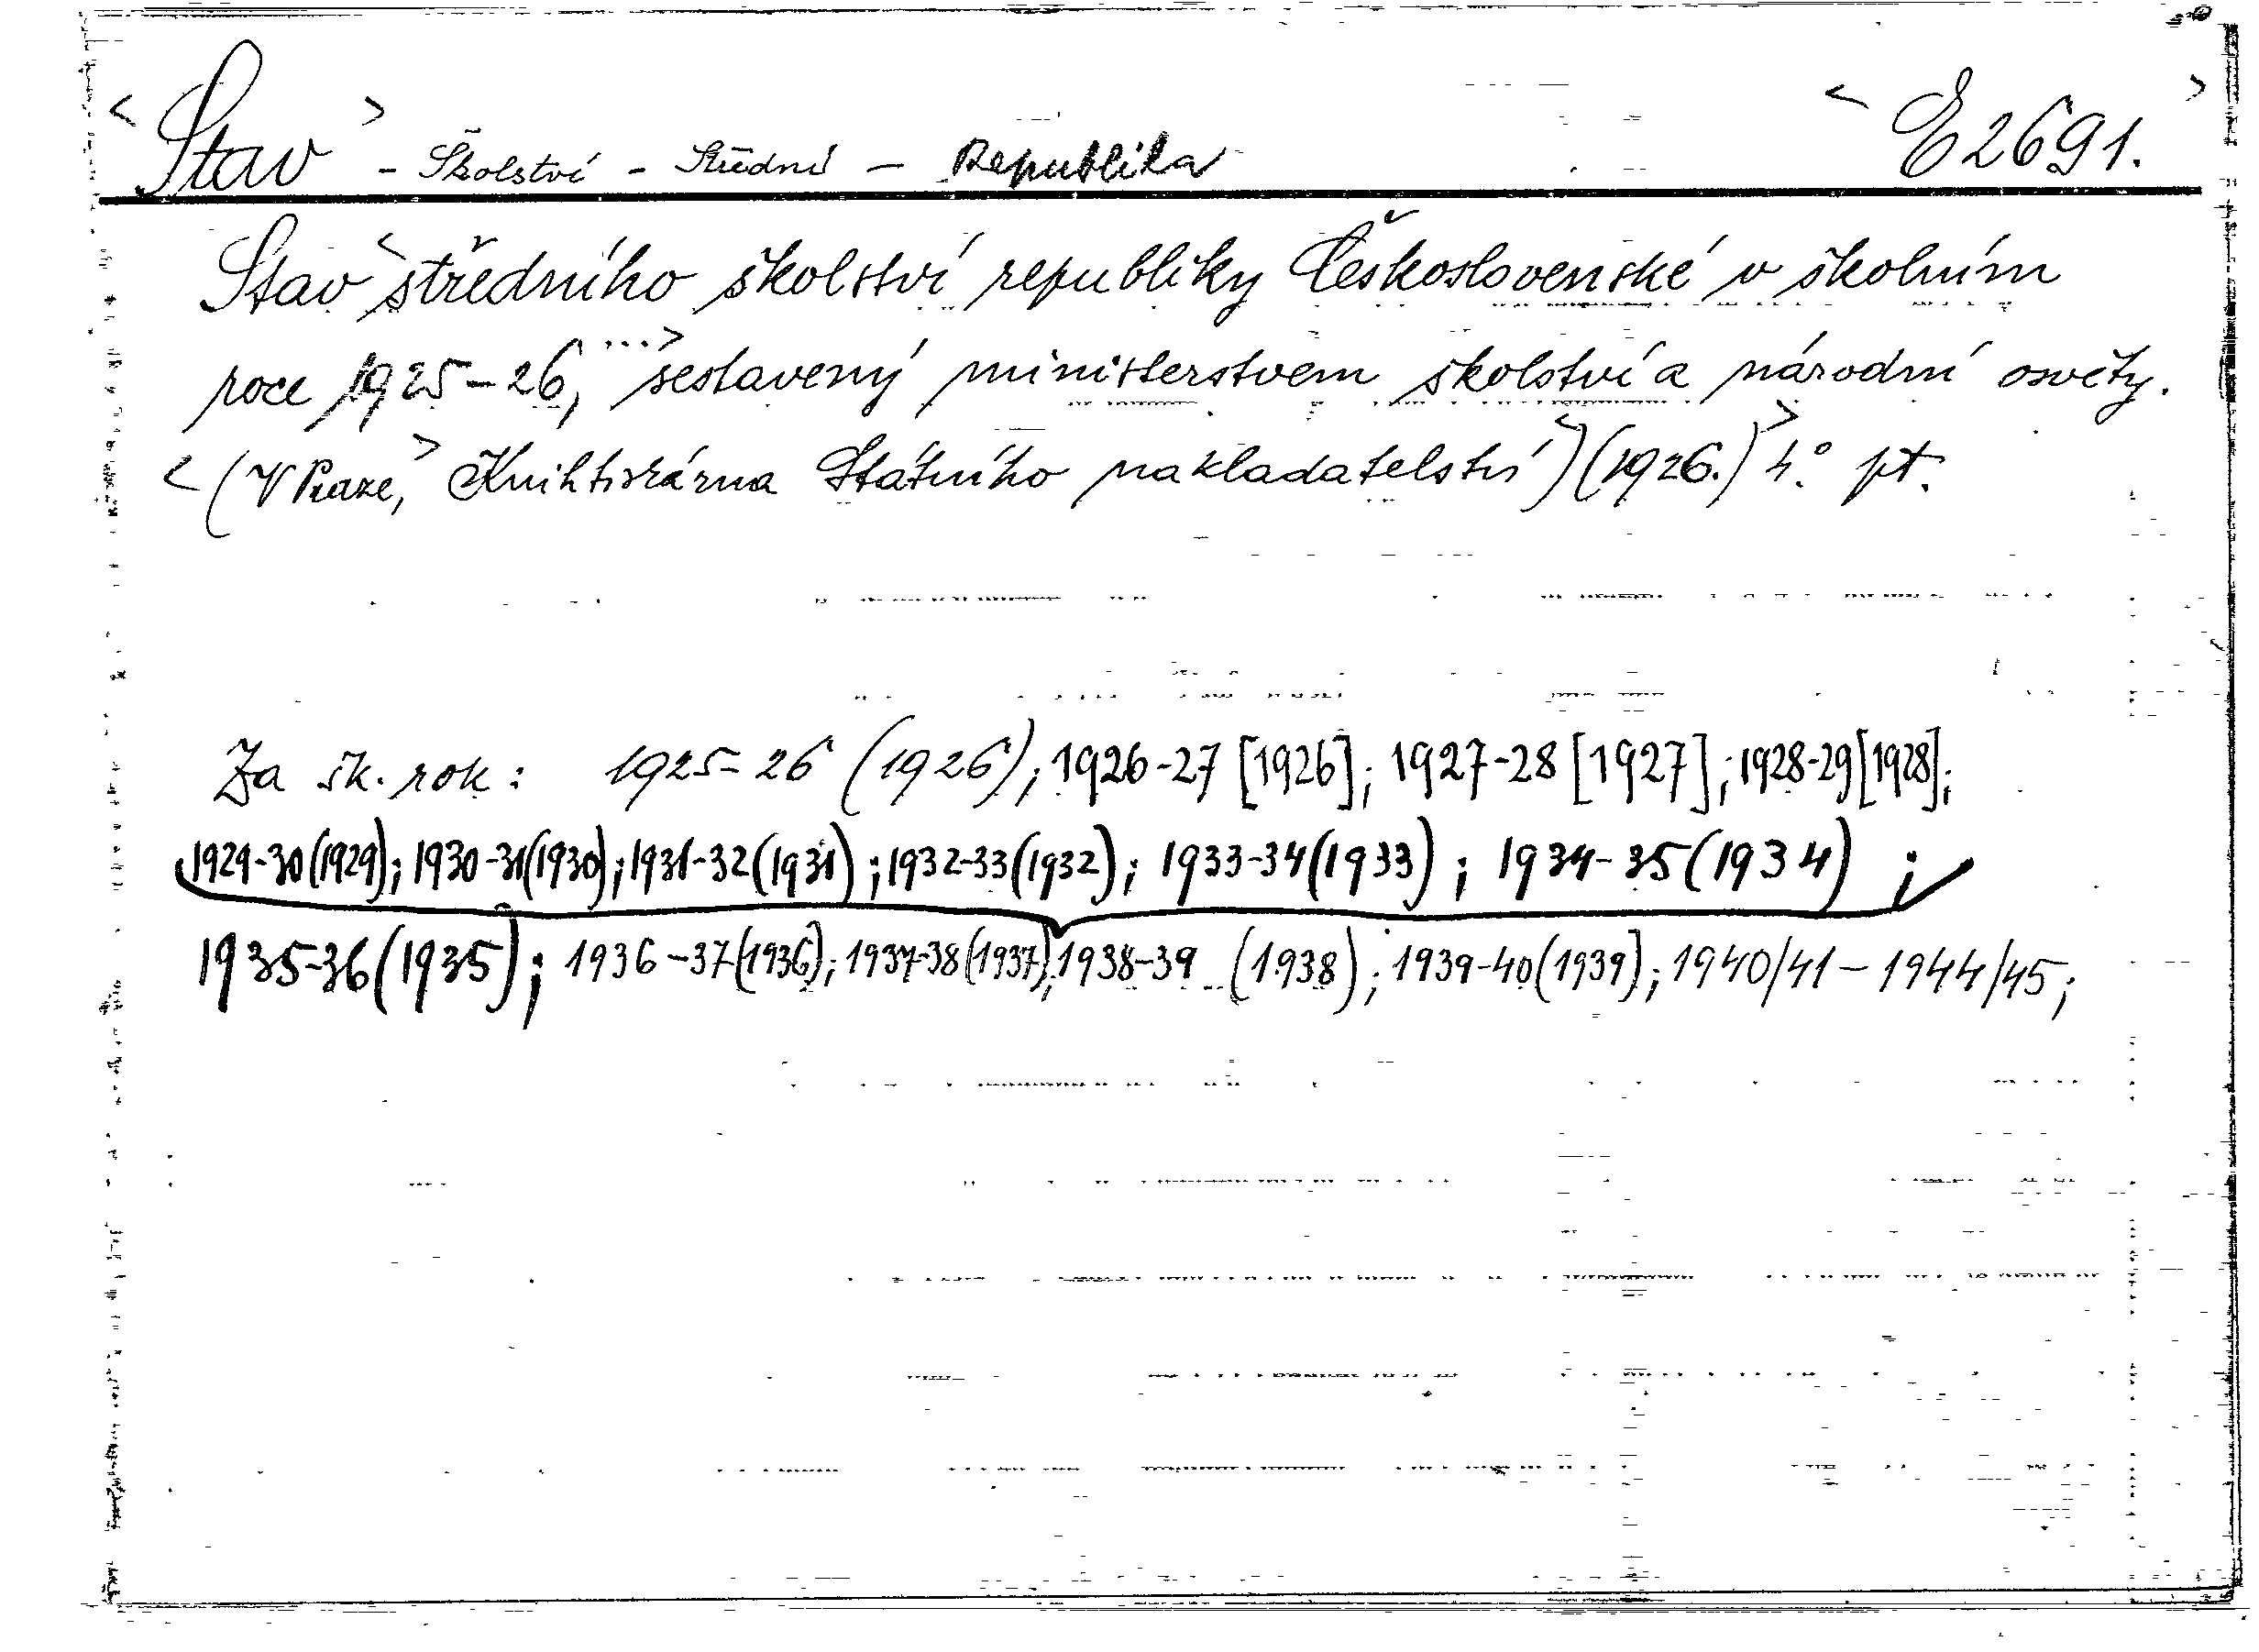 <Stav> - Školství - Střední - Republika <E 2691.>
Stav <středního školství republiky Československé v školním
roce 1925-26, ...> sestavený ministerstvem školství a národní osvěty.
<(V Praze,> Knihtiskárna Státního nakladatelství<)(1926.)> 4.° pt.
Za šk. rok: 1925-26 (1926); 1926-27 [1926]; 1927-28 [1927]; 1928-29 [1928];
1929-30 (1929); 1930-31 (1930); 1931-32 (1931); 1932-33 (1932); 1933-34 (1933); 1934-35 (1934);
1935-36 (1935); 1936-37 (1936); 1937-38 (1937); 1938-39 (1938); 1939-40 (1939]; 1940/41 - 1944/45;